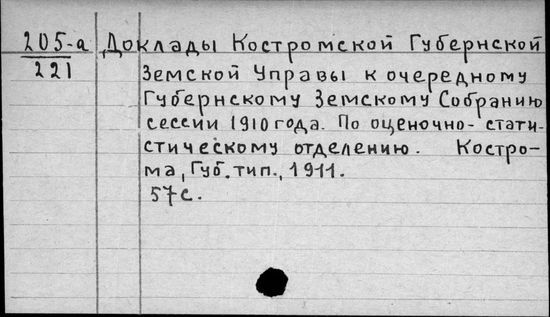 205-а Доклады Костромской Губернской
221 Земской Управы к очередному
Губернскому Земскому Собранию
сессии 1910 года. По оценочно-стати-
стическому отделению. Костро-
ма, Губ. тип., 1911.
57 с.